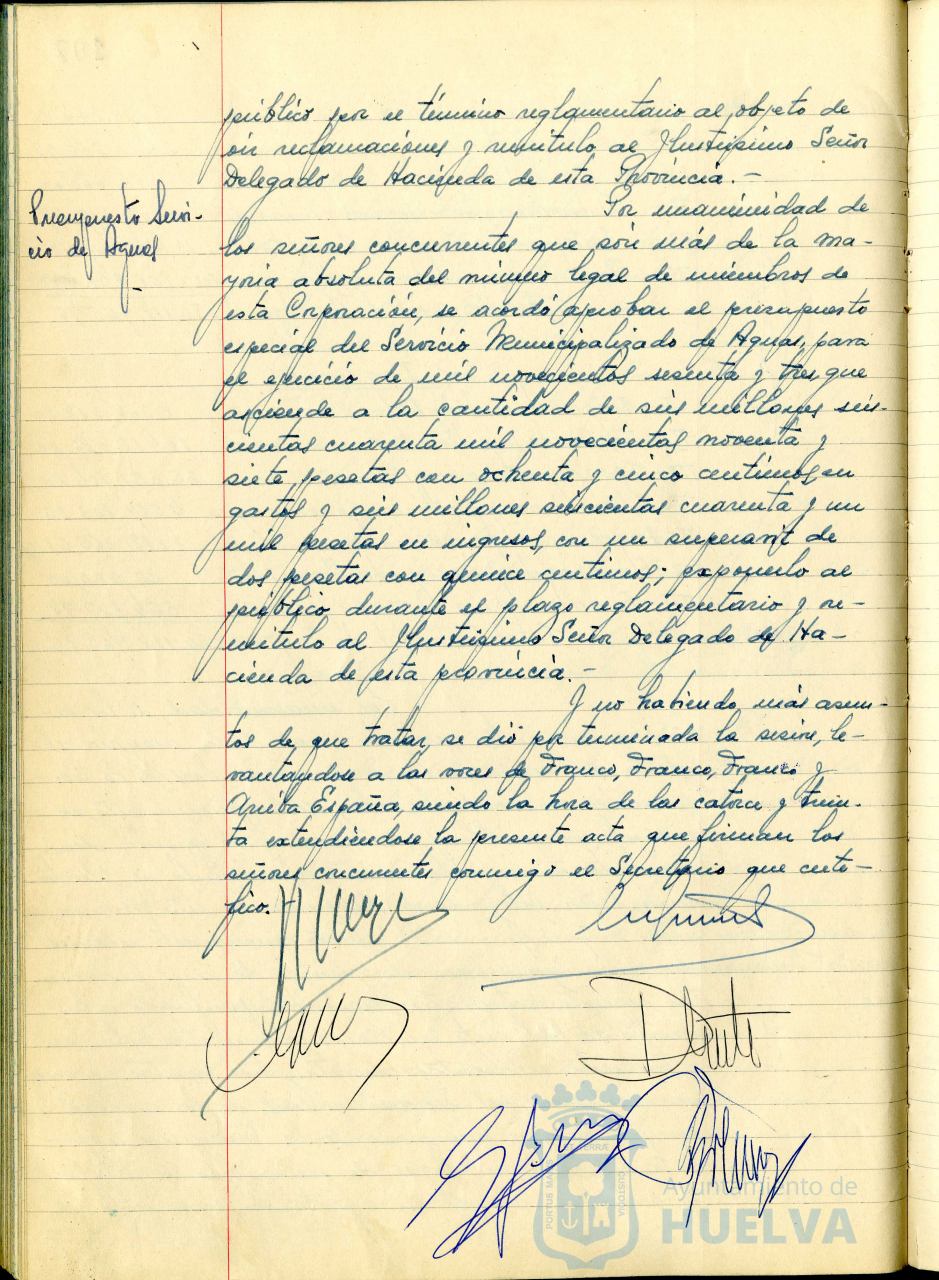 público por el término reglamentario al objeto de
oir reclamaciones y remitirlo al Ilustrisimo Señor
Delegado de Hacienda de esta Provincia.-
Presupuesto Servi-
cio de Aguas
Por unanimidad de
los señores concurrentes que son más de la ma-
yoria absoluta del número legal de miembros de
esta Corporación, se acordó aprobar el presupuesto
especial del Servicio Municipalizado de Aguas, para
el ejercicio de mil novecientos sesenta y tres que
asciende a la cantidad de seis millones seis-
cientas cuarenta mil novecientas noventa y
siete pesetas con ochenta y cinco centimos en
gastos y seis millones seiscientas cuarenta y un
mil pesetas en ingresos, con un superavit de
dos pesetas con quince centimos; exponerlo al
público durante el plazo reglamentario y re-
mitirlo al Ilustrisimo Señor Delegado de Ha-
cienda de esta provincia.-
Y no habiendo más asun-
tos de que tratar, se dió por terminada la sesion, le-
vantandose a las voces de Franco, Franco, Franco y
Arriba España, siendo la hora de las catorce y trein-
ta extendiéndose la presente acta que firman los
señores concurrentes conmigo el Secretario que certi-
fico.-
Ayuntamiento de
HUELVA